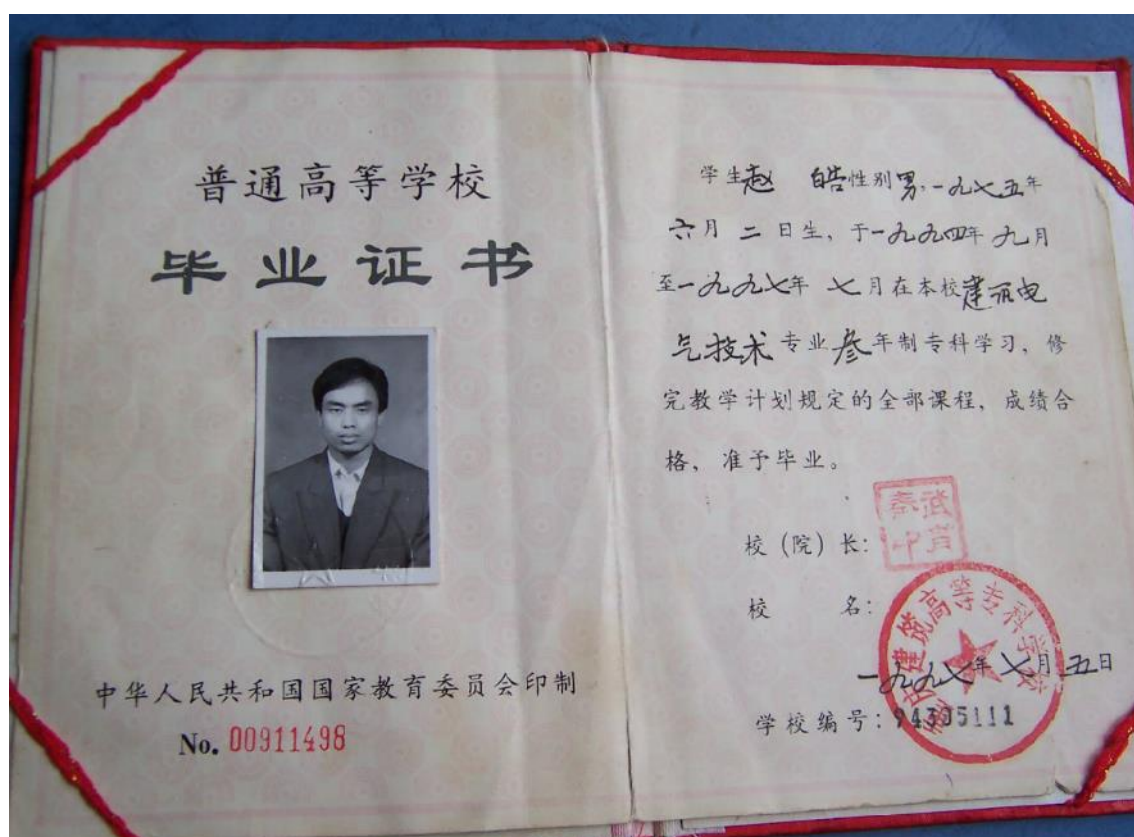 普通高等学校
毕业证书
中华人民共和国国家教育委员会印制
No. 00911498
学生赵 皓性别男,一九七五年
六月二日生，于一九九四年九月
至一九九七年七月在本校建筑电
气技术专业叁年制专科学习，修
完教学计划规定的全部课程，成绩合
格，准予毕业。
校（院）长：
校 名：
建筑高等专科学校
一九九七年七月五日
学校编号：94305111